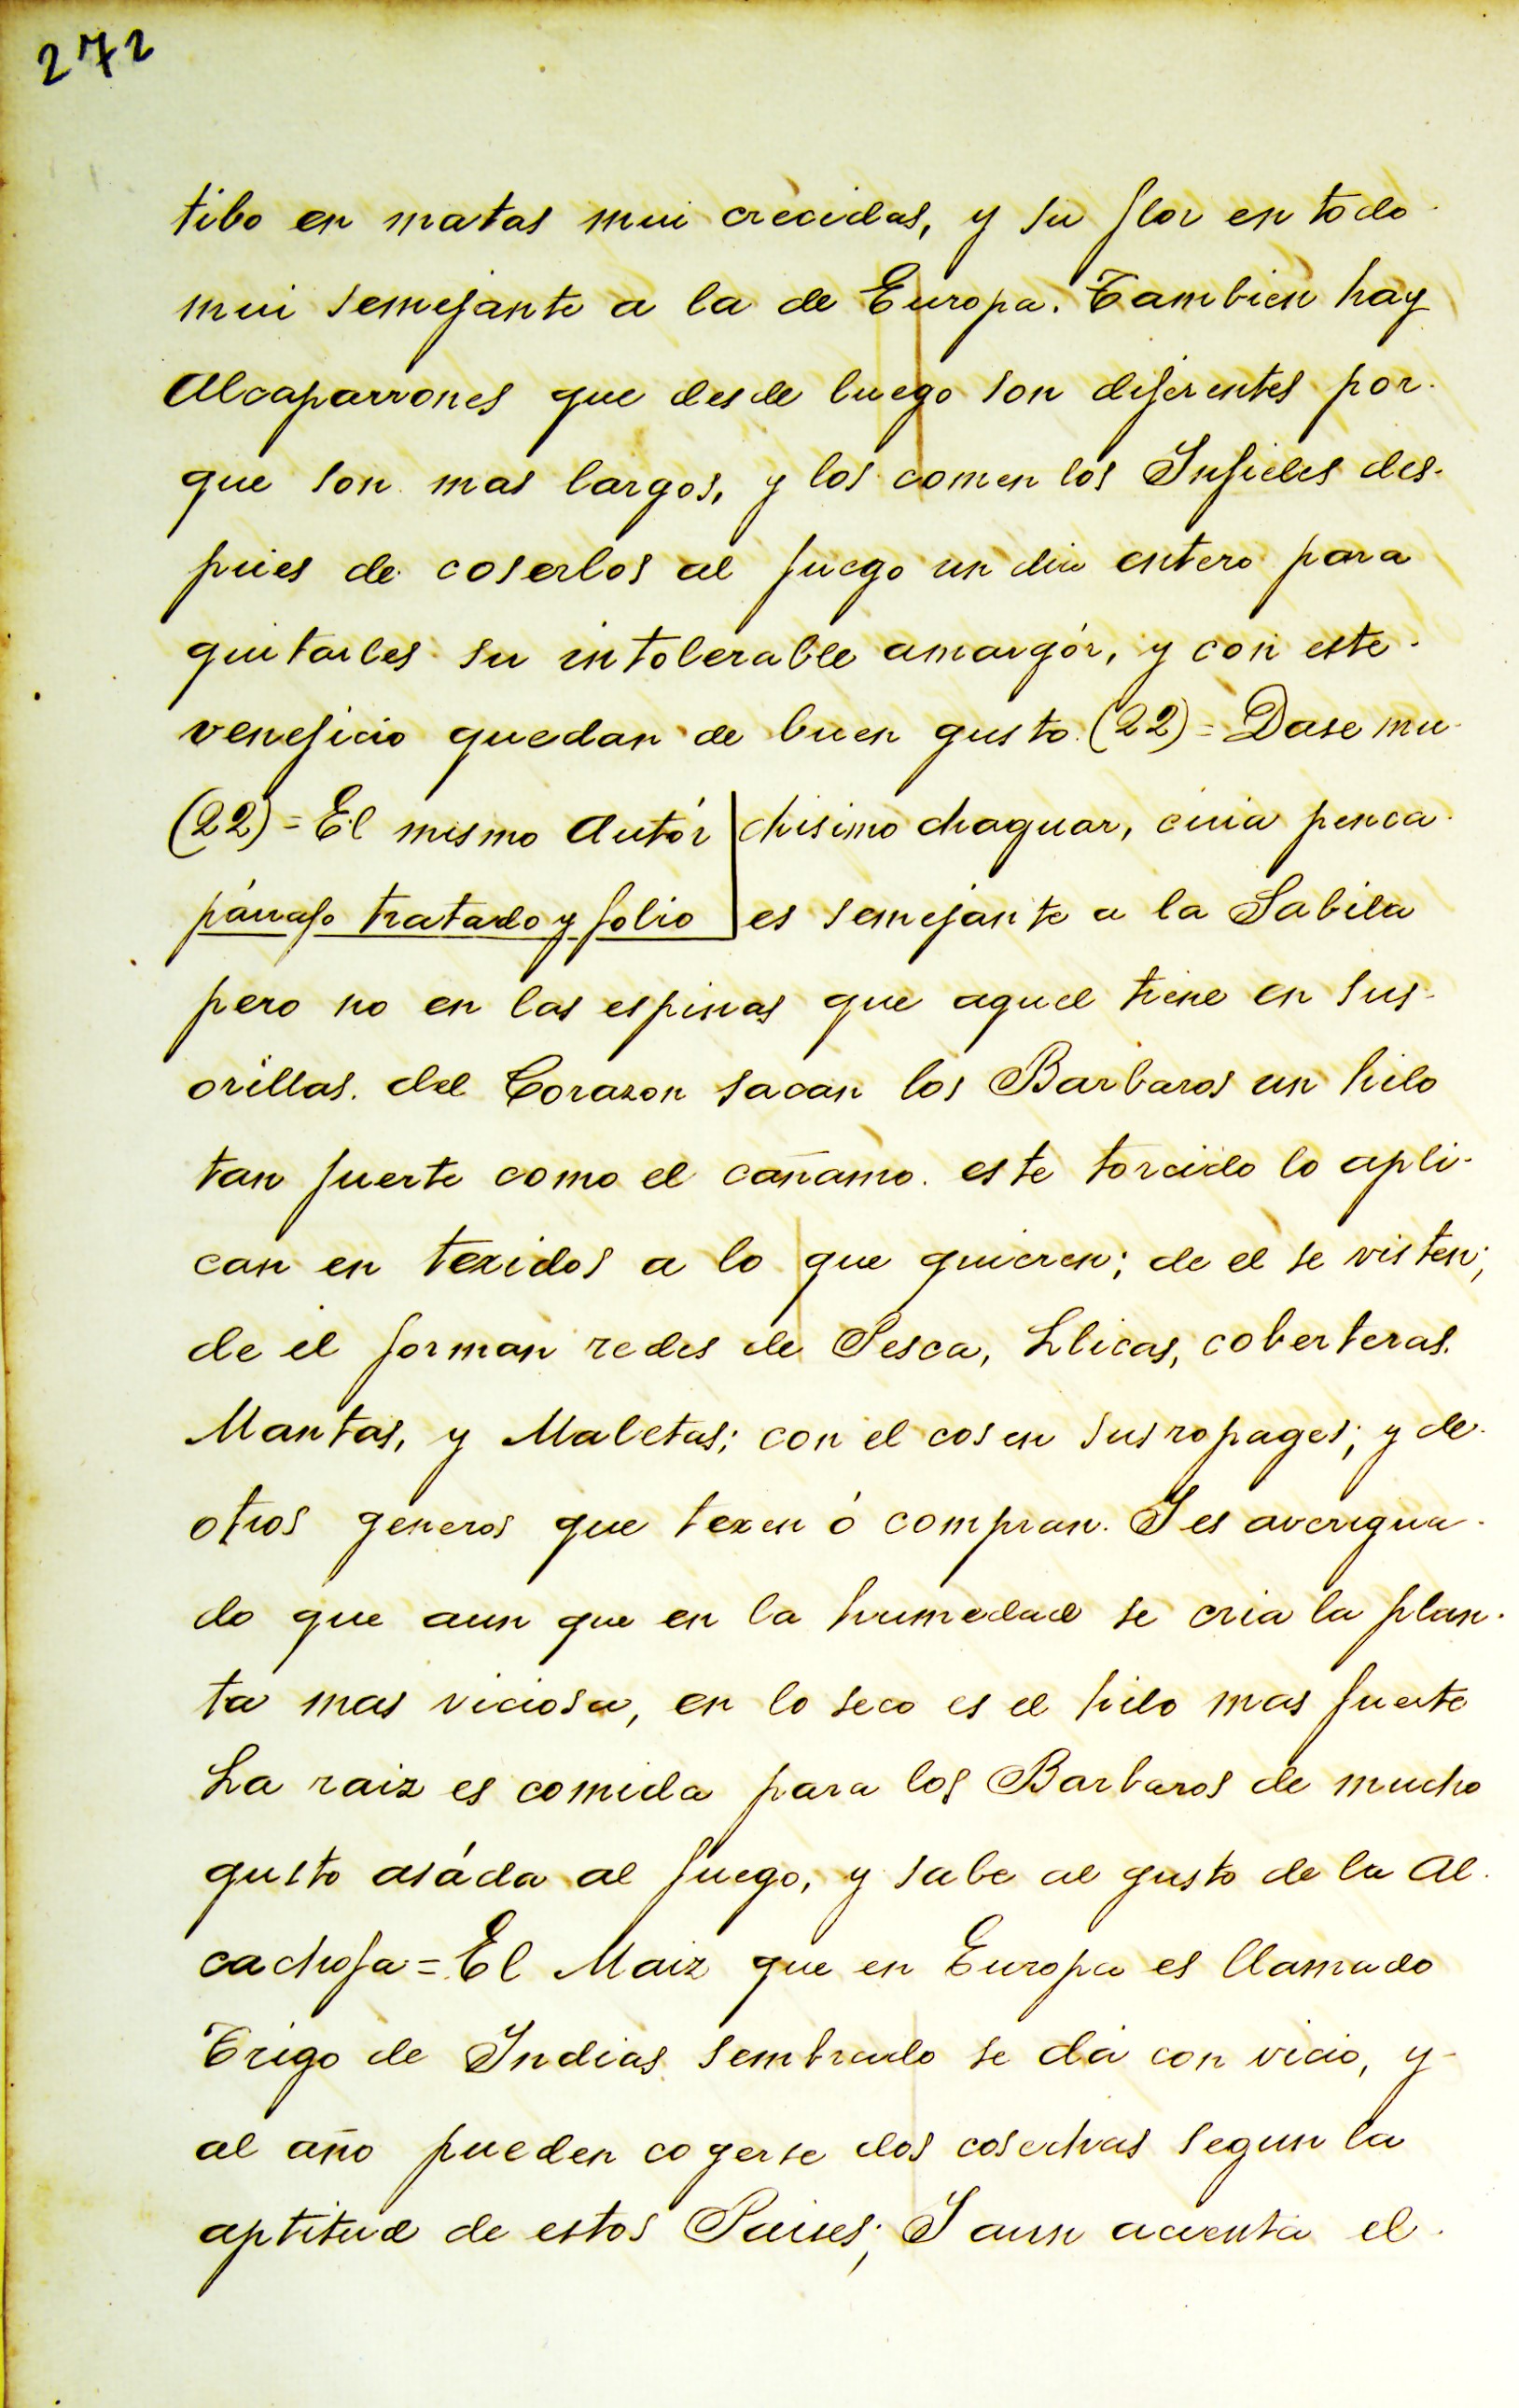 272
tibo en matas mui crecidas, y su flor en todo
mui semejante a la de Europa. Tambien hay
Alcaparrones que desde luego son diferentes por-
que son mas largos, y los comen los Infieles des-
pues de coserlos al fuego un dia entero para
quitarles su intolerable amargór, y con este
veneficio quedan de buen gusto (22) = Dase mu-
(22) = El mismo Autór
párrafo tratado y folio
chisimo chaguar, cuia penca
es semejante a la Sabila
pero no en las espinas que aquel tiene en sus
orillas. del Corazon sacan los Barbaros un hilo
tan fuerte como el cañamo. este torcido lo apli-
can en texidos a lo que quieren; de el se visten;
de el forman redes de Pesca, Llicas, coberteras.
Mantas, y Maletas; con el cosen sus ropages; y de
otros generos que texen ó compran. I es averigua-
do que aun que en la humedad se cria la plan-
ta mas viciosa, en lo seco es el hilo mas fuerte
La raiz es comida para los Barbaros de mucho
gusto asáda al fuego, y sabe al gusto de la Al-
cachofa = El Maiz que en Europa es llamado
Trigo de Indias sembrado se dá con vicio, y
al año pueden cogerse dos cosechas segun la
aptitud de estos Paises; I aun acuenta el